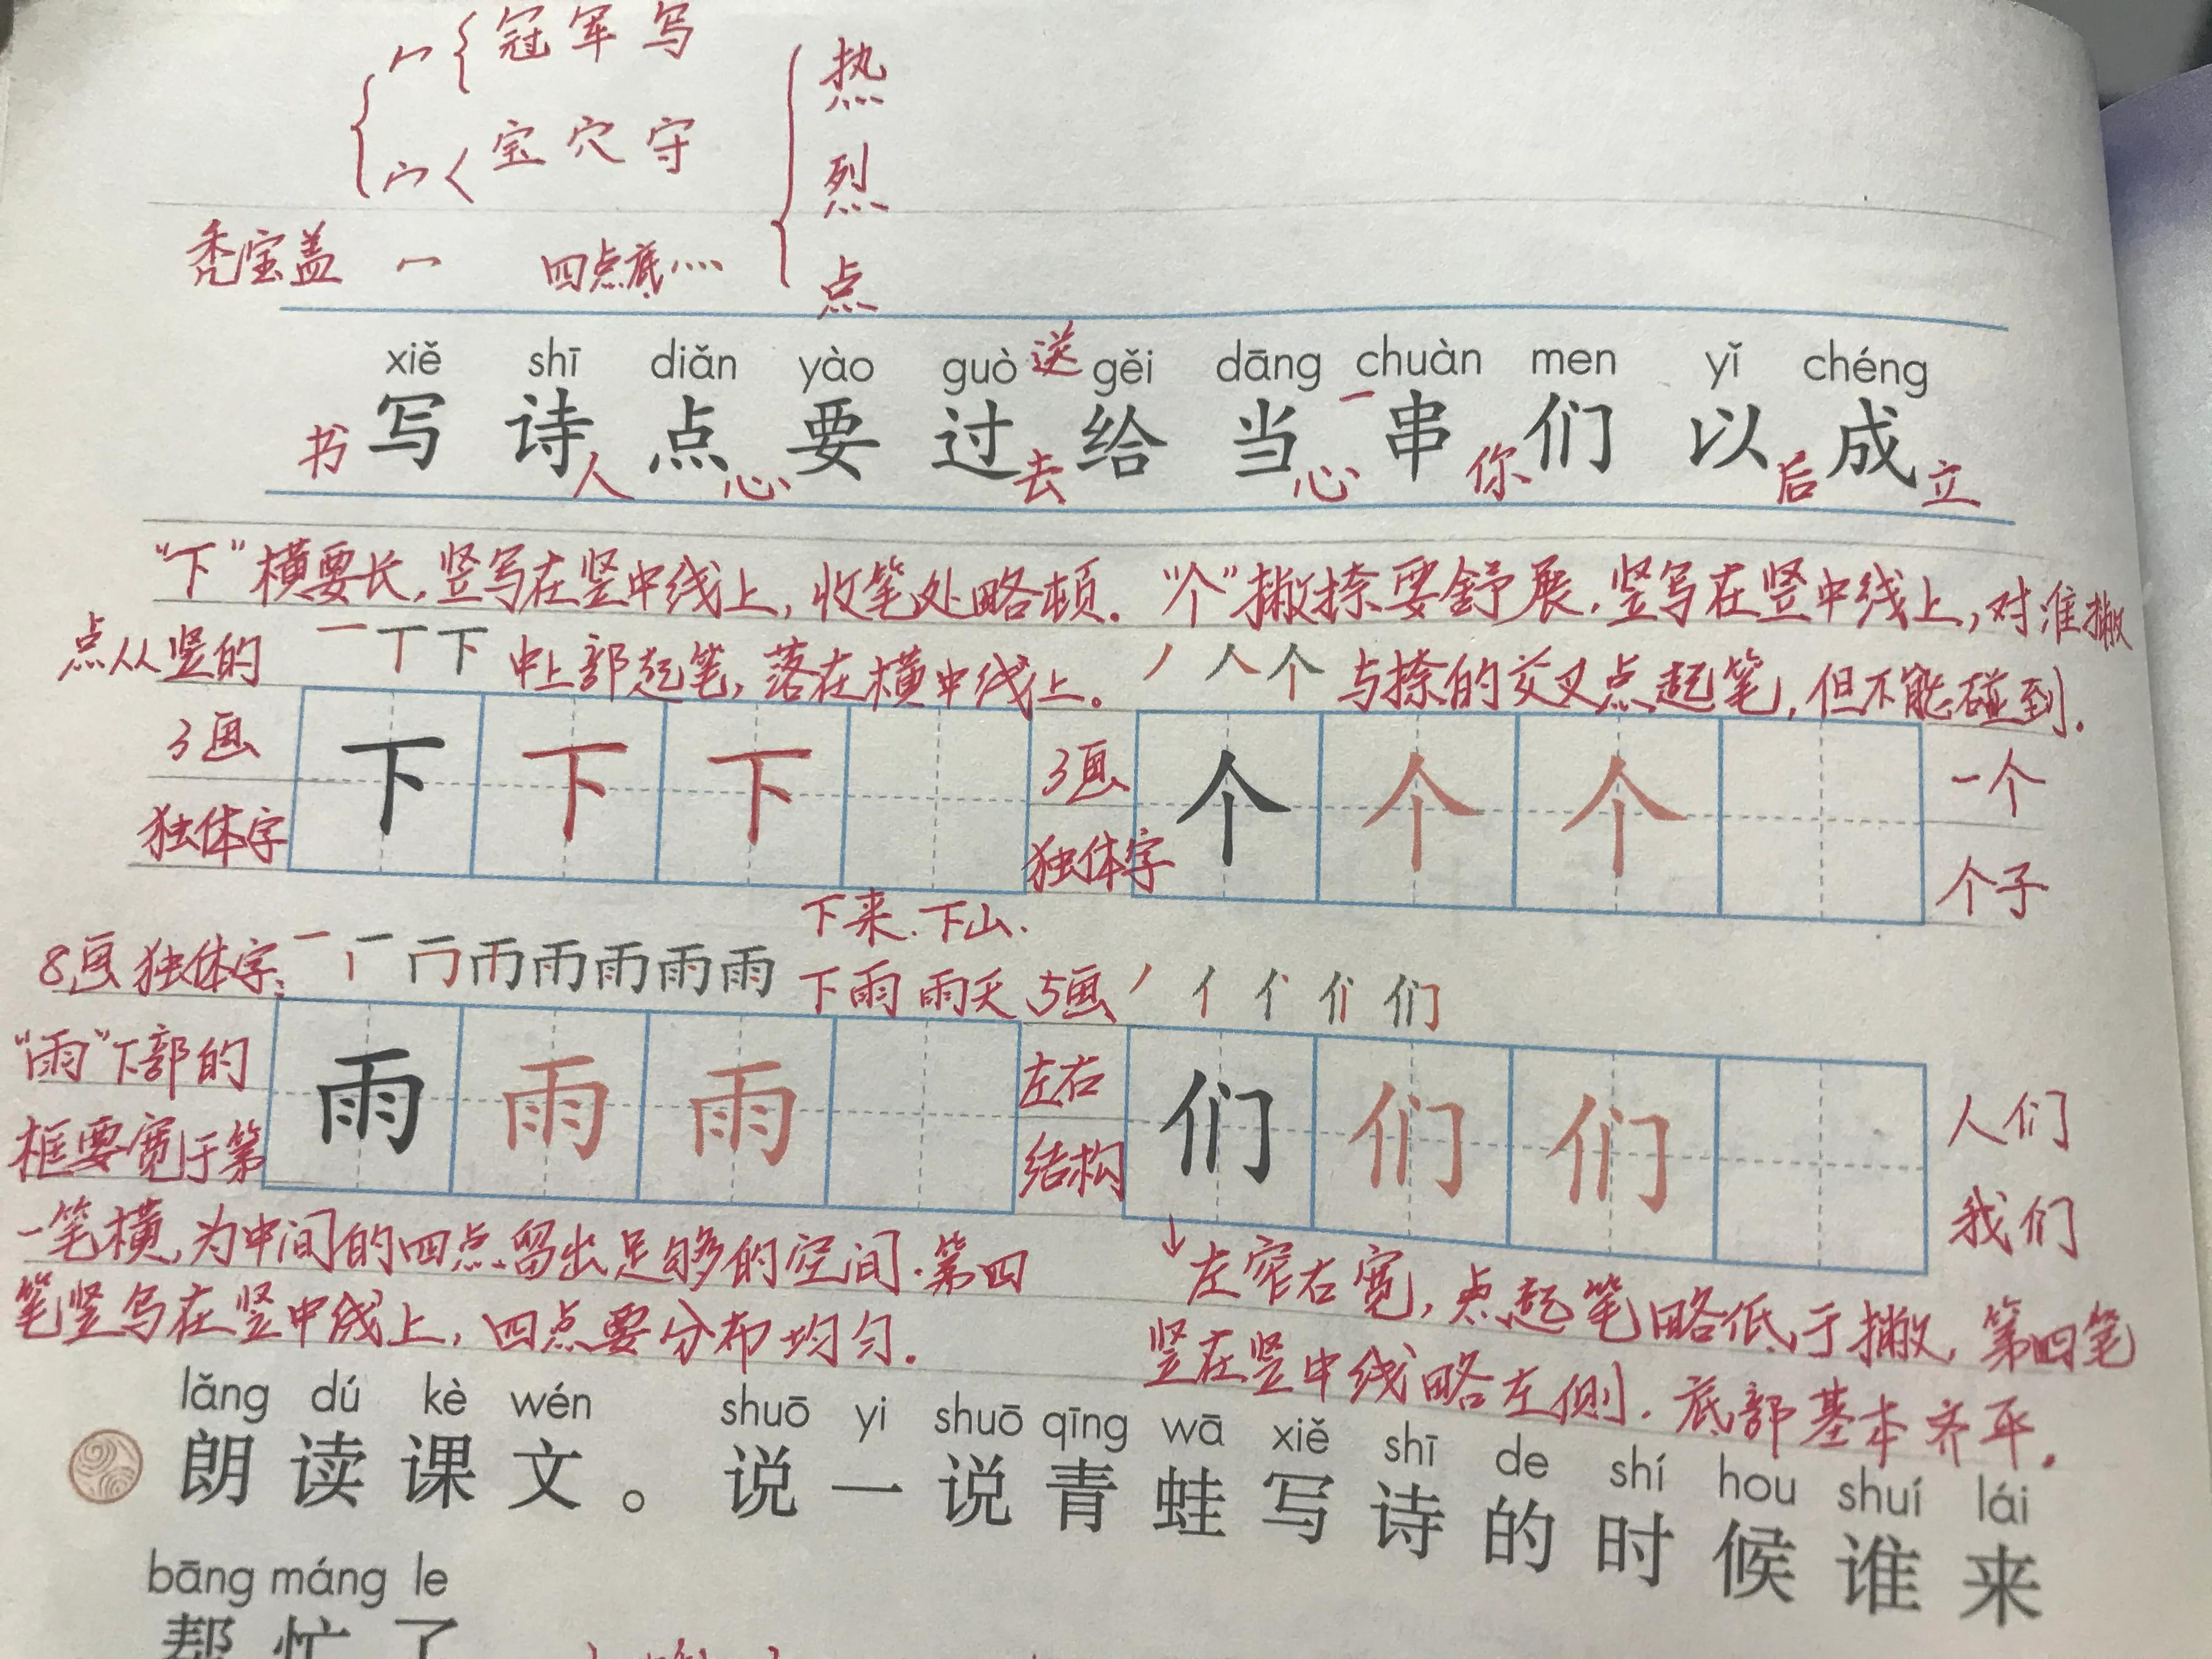 冖 冠 军 写
宀 宝 穴 守
热
烈
点
秃宝盖 冖 四点底 灬
xiě shī diǎn yào guò 送 gěi dāng chuàn men yǐ chéng
书 写 诗 人 点 心 要 过 去 给 当 心 一 串 你 们 以 后 成 立
“下”横要长,竖写在竖中线上,收笔处略顿.
点从竖的 一 丅 下 中上部起笔,落在横中线上。
“个”撇捺要舒展.竖写在竖中线上,对准撇
丿 人 个 与捺的交叉点起笔,但不能碰到.
3画
独体字
下 下 下
3画
独体字
个 个 个
一个
个子
下来.下山.
下雨 雨天
8画 独体字:
雨
5画 丿 亻 们
“雨”下部的
框要宽于第
雨 雨 雨
左右
结构
们 们 们
人们
我们
一笔横,为中间的四点留出足够的空间.第四
笔竖写在竖中线上,四点要分布均匀.
↓左窄右宽,点起笔略低于撇,第四笔
竖在竖中线略左侧.底部基本齐平.
lǎng dú kè wén shuō yi shuō qīng wā xiě shī de shí hou shuí lái
朗 读 课 文 。 说 一 说 青 蛙 写 诗 的 时 候 谁 来
bāng máng le
帮 忙 了